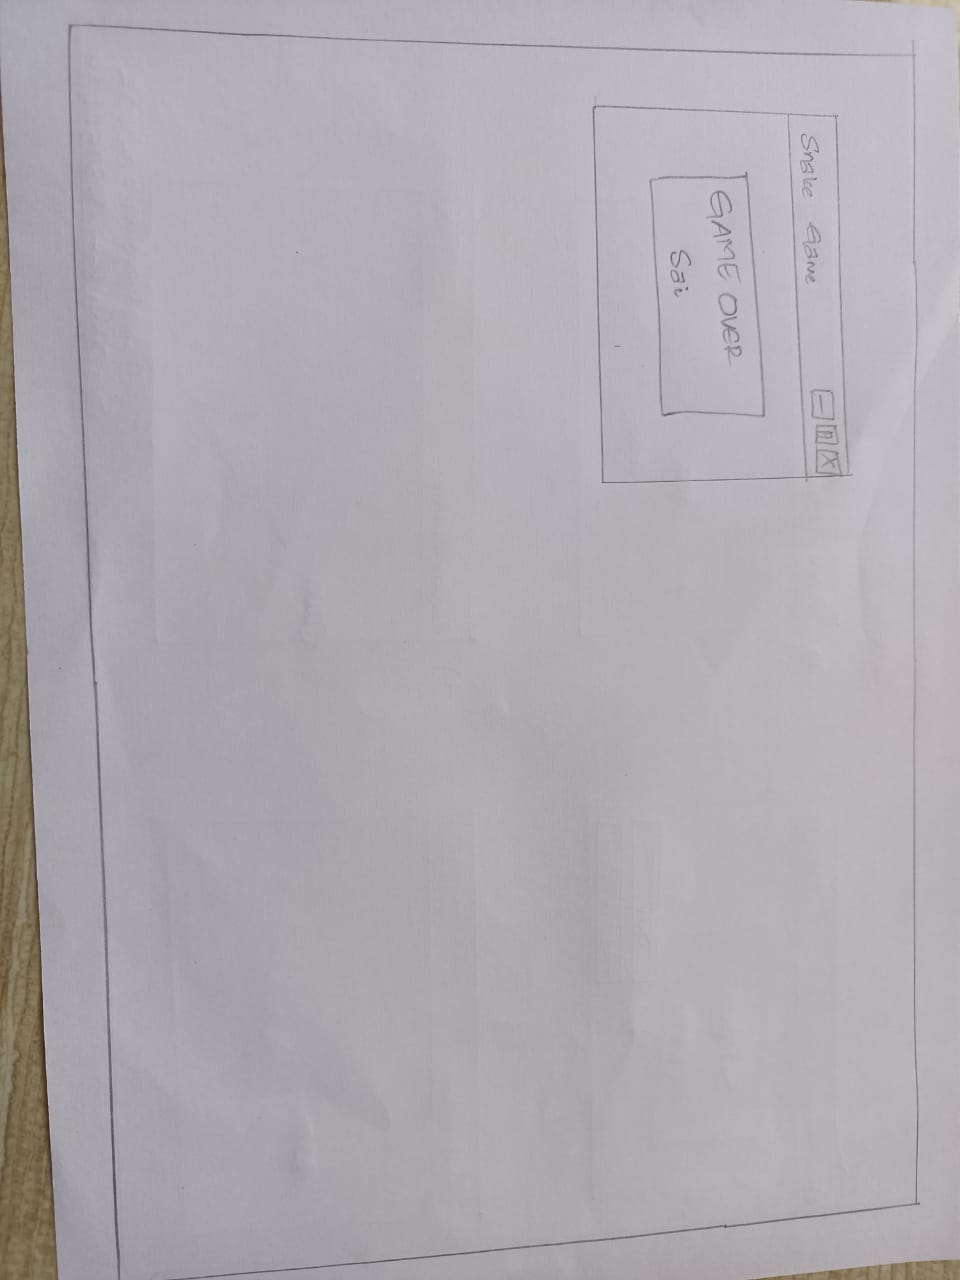 Snake Game
GAME OVER
Sai